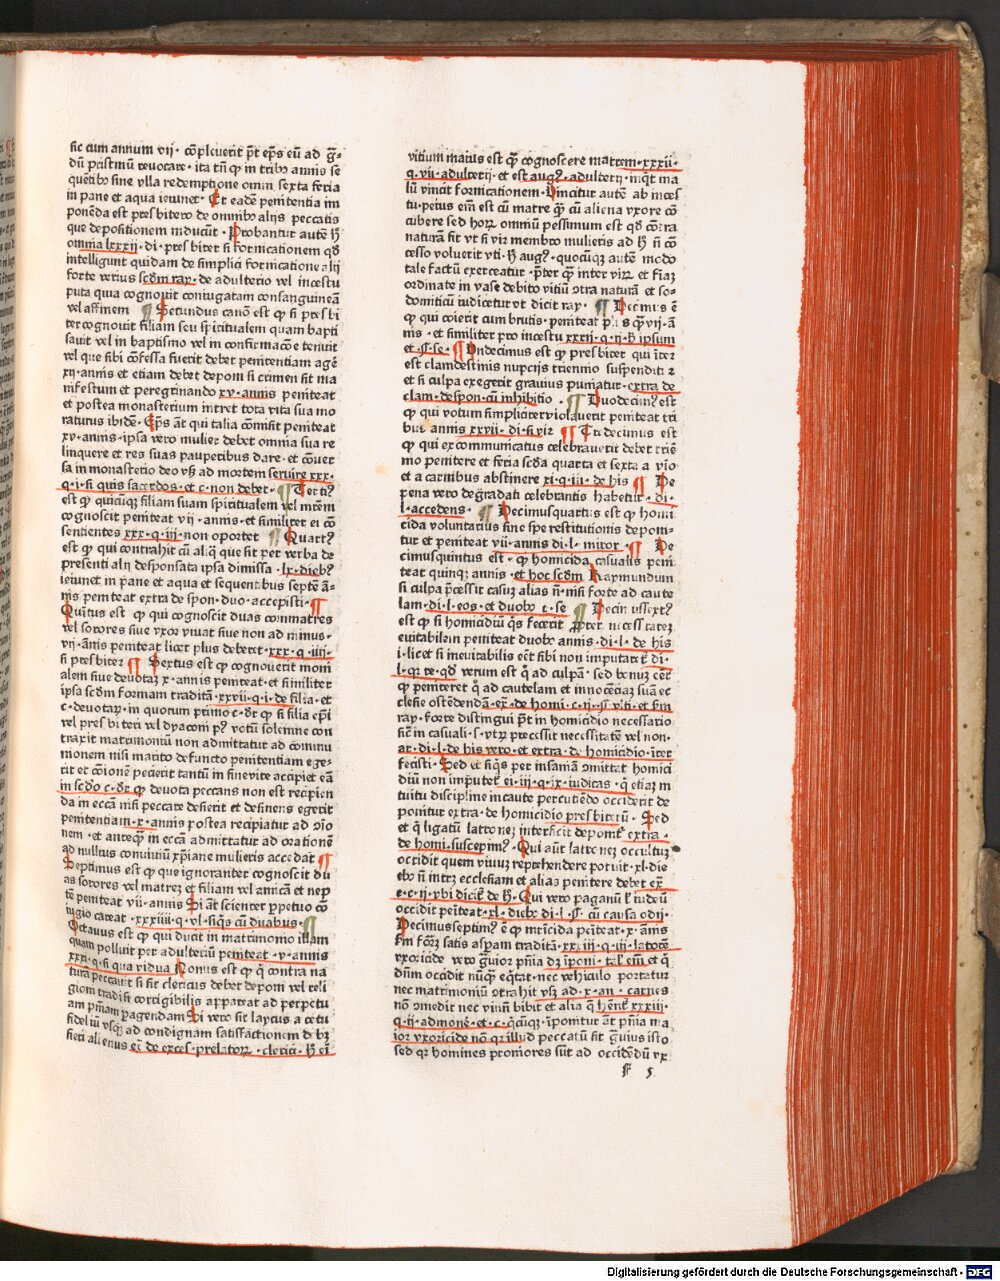 sic cum annum vij· cõpleuerit p̃t ep̃s eũ ad g̃·
dũ pristinũ reuocare· ita tñ ꝙ in tribꝰ annis se
quẽtibꝰ sine vlla redemptione omni sexta feria
in pane et aqua ieiunet· Et eadẽ penitentia im
ponẽda est presbitero de omnibꝰ alijs peccatis
que depositionem inducũt· Probantur autẽ h̃
omnia lxxxij· di· presbiter si fornicationem qđ
intelligunt quidam de simplici fornicatione alij
forte verius scđm ray· de adulterio vel incestu
puta quia cognouit coniugatam consanguineã
vel affinem ¶ Secundus canõ est ꝙ si presbi
ter cognouit filiam seu spiritualem quam bapti
sauit vel in baptismo vel in confirmacõe tenuit
vel que sibi cõfessa fuerit debet penitentiam agẽ
xij· annis et etiam debet deponi si crimen sit ma
nifestum et peregrinando xv· annis peniteat
et postea monasterium intret tota vita sua mo
raturus ibidẽ· Ep̃s aũt qui talia cõmisit peniteat
xv· annis· ipsa vero mulier debet omnia sua re
linquere et res suas pauperibus dare· et cõuer
sa in monasterio deo vsq̃ ad mortem seruire xxx·
q· i· si quis sacerdos· et c· non debet· ¶ Terti⁹
est ꝙ quicũq̃ filiam suam spiritualem vel mr̃em
cognoscit peniteat vij· annis· et similiter ei cõ
sentientes xxx· q· iij· non oportet ¶ Quart⁹
est ꝙ qui contrahit cũ aliq̃ que sit per verba de
presenti alij desponsata ipsa dimissa· lx· dieb⁹
ieiunet in pane et aqua et sequentibus septẽ ã·
nis peniteat extra de spon· duo· accepisti· ¶
Quintus est ꝙ qui cognoscit duas commatres
vel sorores siue vxor viuat siue non ad minus·
vij· ãnis peniteat licet plus deberet· xxx· q· iiij·
si presbiter ¶ Sextus est ꝙ cognouerit moni
alem siue deuotaz x· annis peniteat· et similiter
ipsa scđm formam traditã· xxvij· q· i· de filia· et
c· deuotaꝝ· in quorum primo c· dr̃ ꝙ si filia epĩ
vel presbiteri vel dyaconi p⁹ votũ solemne con
traxit matrimoniũ non admittatur ad commu
nionem nisi marito defuncto penitentiam ege·
rit et cõionẽ pecierit tantũ in fine vite accipiet eã
in scđo c· dr̃ ꝙ deuota peccans non est recipien
da in eccã nisi peccare desierit et desinens egerit
penitentiam· x· annis postea recipiatur ad cõio
nem· et anteq̃ in eccã admittatur ad orationẽ
ad nullius conuiuiũ xp̃iane mulieris accedat ¶
Septimus est ꝙ que ignoranter cognoscit du
as sorores vel matrez et filiam vel amicã et nep
tẽ peniteat vii· annis Si aũt scienter p̱petuo cõ
iugio careat· xxxiiij· q· vl· siq̃s cũ duabus· ¶
Octauus est ꝙ qui ducit in matrimonio illam
quam polluit per adulteriũ peniteat· v· annis
xxxi· q· si qua vidua Nonus est ꝙ q̃ contra na
tura peccauit si sit clericus debet deponi vel reli
gioni tradi si corrigibilis appareat ad perpetu
am pñiam p̱agendam Si vero sit laycus a cetu
fideliũ vsq̃ ad condignam satisfactionem dꝫ bꝫ
fieri alienus eẽ de exces· prelatoꝝ· clerici· h̃ eĩ
vitium maius est ꝙ cognoscere matrem· xxxii·
q· vii· adulterij· et est aug⁹· adulterij· inq̃t ma
lũ vincit fornicationem· Vincitur autẽ ab inces
tu· peius em̃ est cũ matre ꝙ cũ aliena vxore cõ
cubere sed hoꝝ ommũ pessimum est qđ cõtra
naturã fit vt si vir membro mulieris ad h̃ ñ cõ
cesso voluerit vti· h̃ aug⁹· quocũqꝫ autẽ modo
tale factũ exerceatur p̃ter ꝙ inter virꝫ et fiaꝫ
ordinate in vase debito vitiũ ɔtra naturã et so·
domiticũ iudicetur vt dicit ray· ¶ Decimus ẽ
ꝙ qui coierit cum brutis· peniteat pl̃s ꝙ vij· ã
nis· et similiter pro incestu xxxij· q· ij· h̃ ipsum
et· ¶· se· ¶ Undecimus est ꝙ presbiter qui iter
est clamdestinis nupcijs triennio suspendit̃ 2
et si culpa exegerit grauius puniatur· extra de
clam· despon· cũ inhibitio· ¶ Duodecim⁹ est
ꝙ qui votum simpliciter violauerit peniteat tri
bus annis xxvii· di· si vir ¶ Tredecimus est
ꝙ qui excommunicatus celebrauerit debet triẽ
nio penitere et feria scđa quarta et sexta a vio
et a carnibus abstinere xi· q· iii· de his ¶ De
pena vero degradati celebrantis habetur· di·
l· accedens· ¶ Decimusquartus est ꝙ homi
cida voluntarius sine spe restitutionis deponi·
tur et peniteat vii· annis di· l· miror· ¶ De
cimusquintus est· ꝙ homicida casualis peni
teat quinqꝫ annis· et hoc scđm Raymundum
si culpa p̃cessit casuꝫ alias ñ nisi forte ad caute
lam· di· l· eos· et duobꝰ c· se ¶ Decimussext⁹
est ꝙ si homicidiũ q̃s fecerit p̱pter necessitateꝫ
euitabilem peniteat duobꝰ annis· di· l· de his
i· li· et si ineuitabilis eẽt sibi non imputaret̃ di·
l· qr̃ te· qđ verum est q̃ ad culpã· sed bonuꝫ eẽt
ꝙ peniteret q̃ ad cautelam et innocẽtiaꝫ suã ec
clesie ostẽdendã· ex̃· de homi· c· ij· ¶ vlti· et s̃m
ray· forte distingui p̃t in homicidio necessario
sic̃ in casuali· s· vtꝝ precessit necessitatẽ vel non·
ar· di· l· de his vero· et extra· d· homicidio· iter
fecisti· Sed et siq̃s per insaniã ɔmittat homici
diũ non imputet̃ ei· iij· q· ix· iudicas· q̃ etiaꝫ in
tuitu discipline incaute percutiẽdo occiderit de
ponitur extra· de homicidio presbiterũ· Sed
et q̃ ligatũ latroneꝫ interficit deponit̃ extra·
de homi· suscepim⁹· Qui aũt latroneꝫ occultuꝫ
occidit quem viuuꝫ reprehendere potuit· xl· die
ebꝰ ñ intrꝫ ecclesiam et alias penitere debet ex̃
e· c· ij· vbi dicit̃ de h̃· Qui vero paganũ l̃ iudeũ
occidit peĩteat· xl· diebꝰ di· l· ¶· cũ causa odij·
Decimusseptim⁹ ẽ ꝙ mr̃icida peĩteat· x· ãnis
s̃m for̃ꝫ satis asp̱am traditã· xxxiij· q· ij· latorẽ
vxoricide vero g̃uior pñia dꝫ ip̃oni· tal̃ em̃ et q̃
dñm occidit nũꝙ eq̃tat· nec vehiculo portatur
nec matrimoniũ ɔtrahit vsq̃ ad· x· an· carnes
nõ ɔmedit nec vinũ bibit et alia q̃ hẽnt̃ xxxiij·
q· ij· admonẽ· et· c· q̃cũqꝫ· ip̃omtur aũt pñia ma
ior vxoricide nõ qr̃ illud peccatũ sit g̃uius isto
sed qr̃ homines proniores sũt ad occidẽdũ vx
F 5
Digitalisierung gefördert durch die Deutsche Forschungsgemeinschaft - DFG